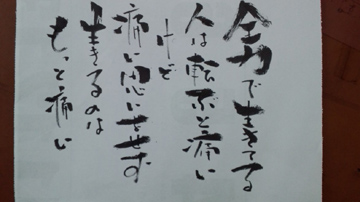 全力で生きてる
人は転ぶと痛い
けど
痛い思いをせず
生きるのは
もっと痛い